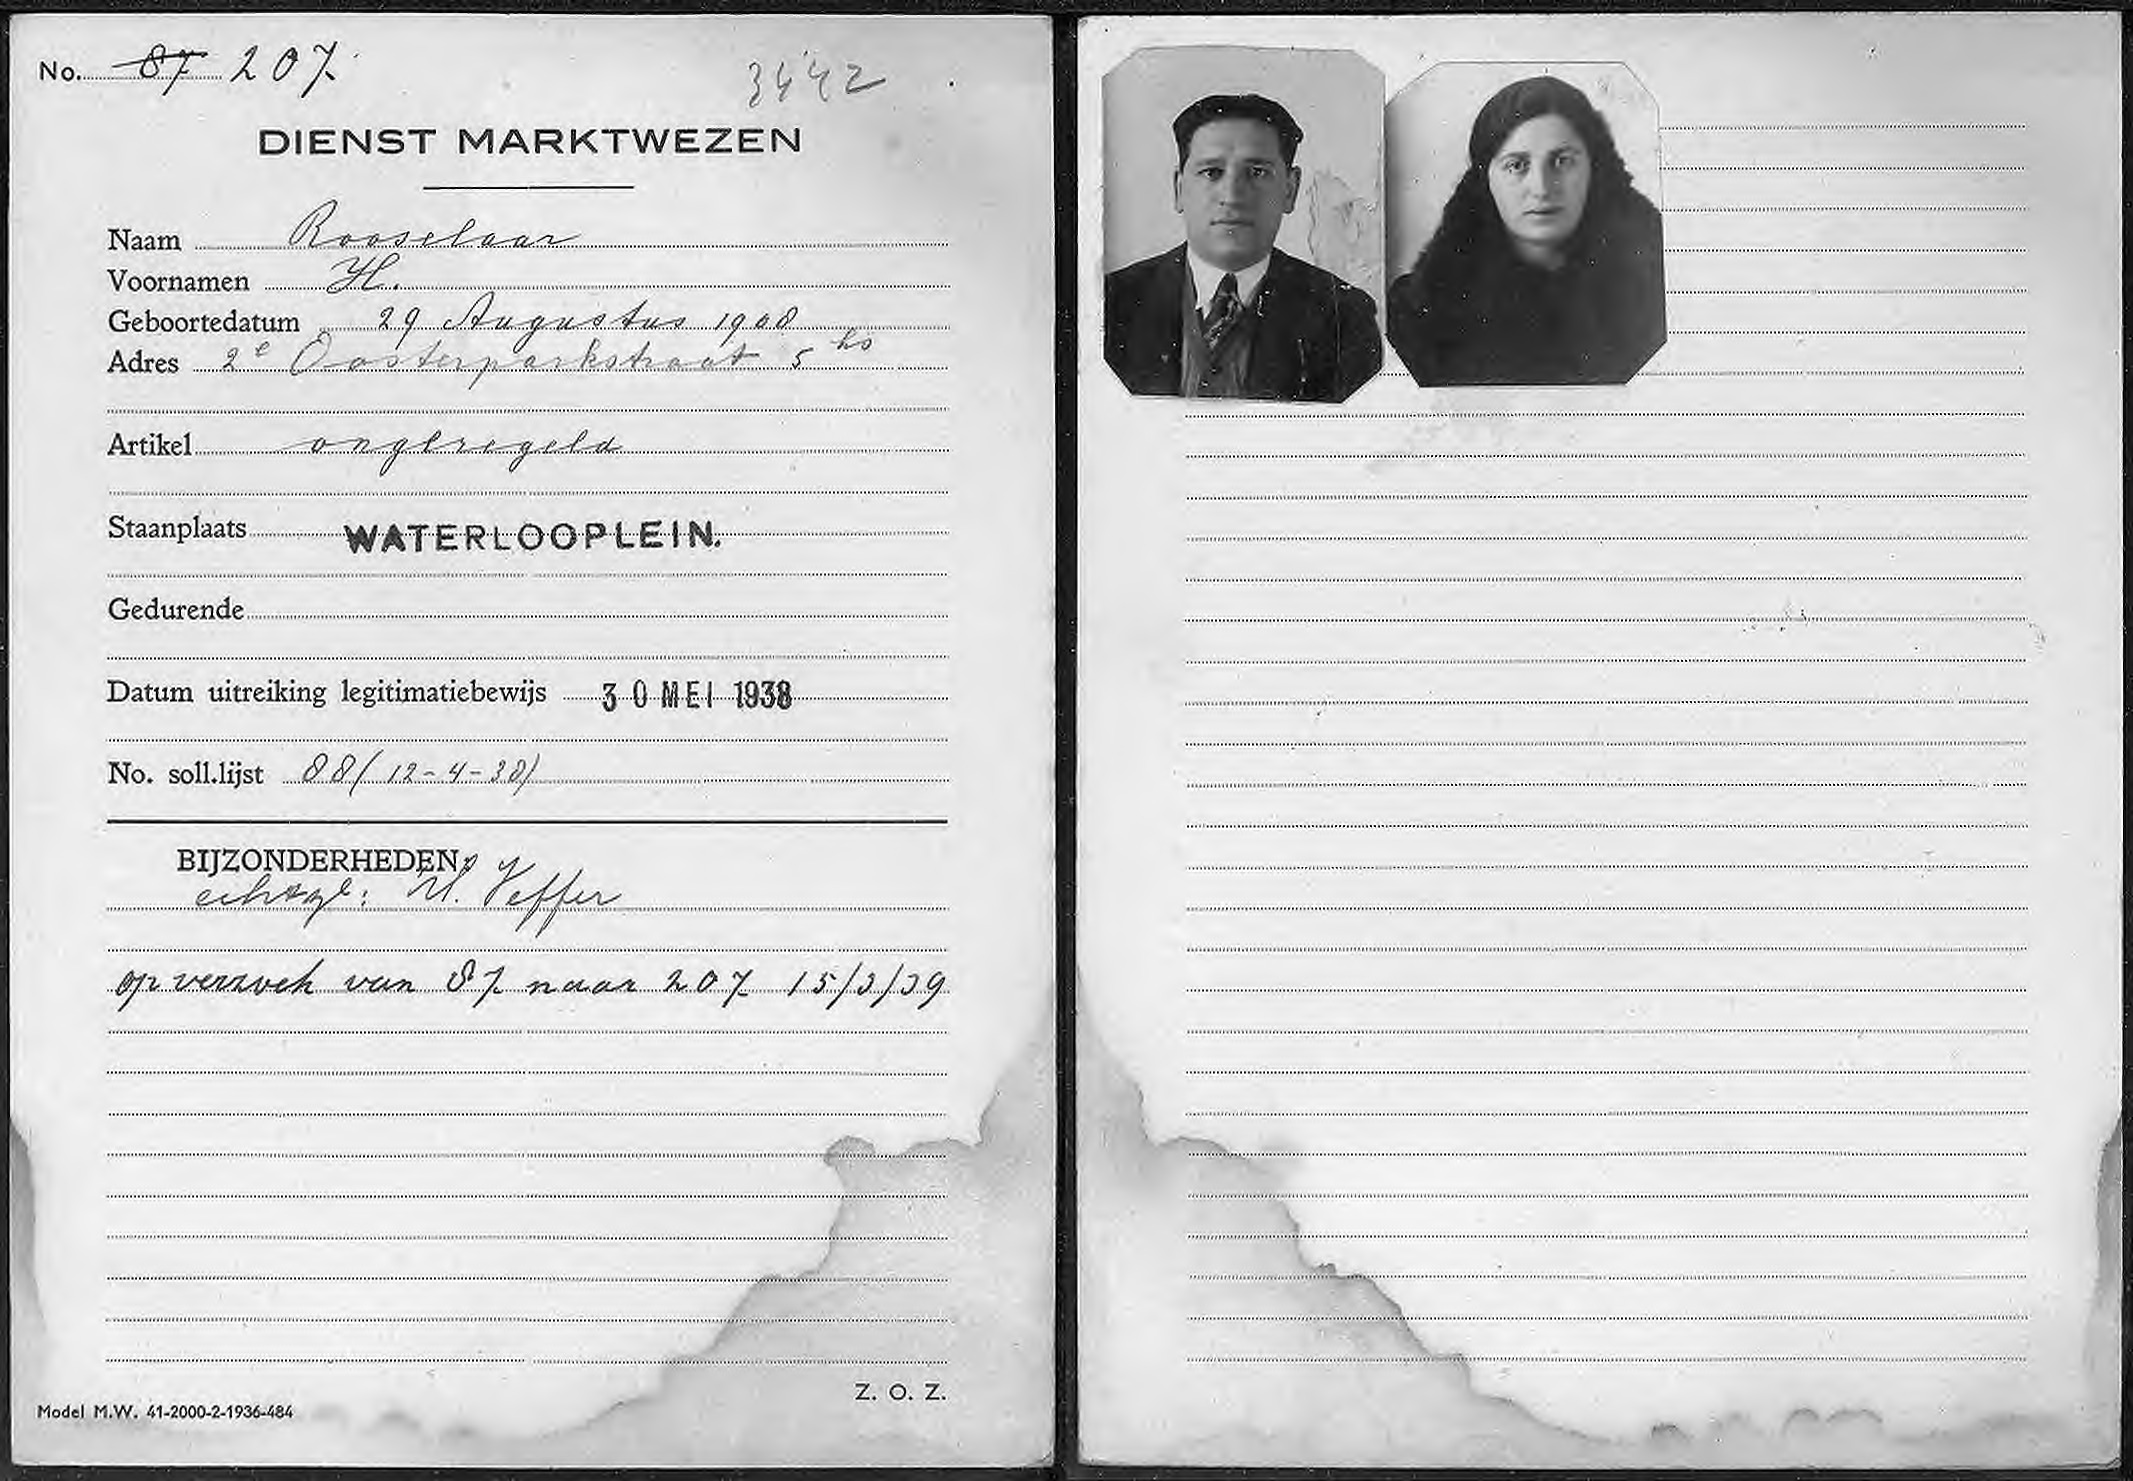 No. 87 207.
3442
DIENST MARKTWEZEN
Naam Rooselaar
Voornamen H.
Geboortedatum 29 Augustus 1908
Adres 2e Oosterparkstraat 5 hs
Artikel ongeregeld
Staanplaats WATERLOOPLEIN.
Gedurende
Datum uitreiking legitimatiebewijs 30 MEI 1938
No. soll.lijst 88 (12-4-38)
BIJZONDERHEDEN
echtg: Veffer
op verzoek van 87 naar 207 15/3/39
Z. O. Z.
Model M.W. 41-2000-2-1936-484